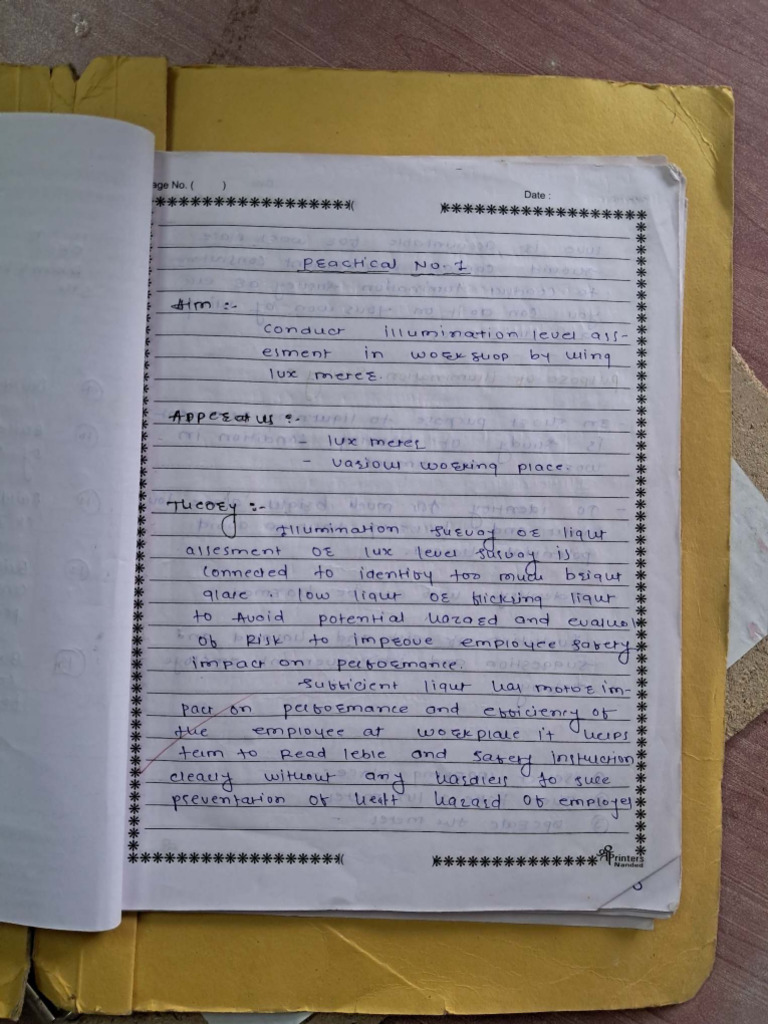 age No. ( )
Date :
Practical No. 1
Aim :-
Conduct illumination level ass-
esment in workshop by using
lux meter.
Apperatus :-
- lux meter
- various working place.
Theory :-
Illumination survay or light
assesment or lux level survay is
connected to identify too much bright
glare. low light or flickring light
to Avoid potential hazard and evaluat
of Risk to improve employee safety
impact on performance.
Sufficient light has motor im-
pact on performance and efficiency of
the employee at workplace it helps
tem to Read leble and safety instruction
clearly without any hardiers to sure
preventation of helt hazard of employee
Printers
Naroda